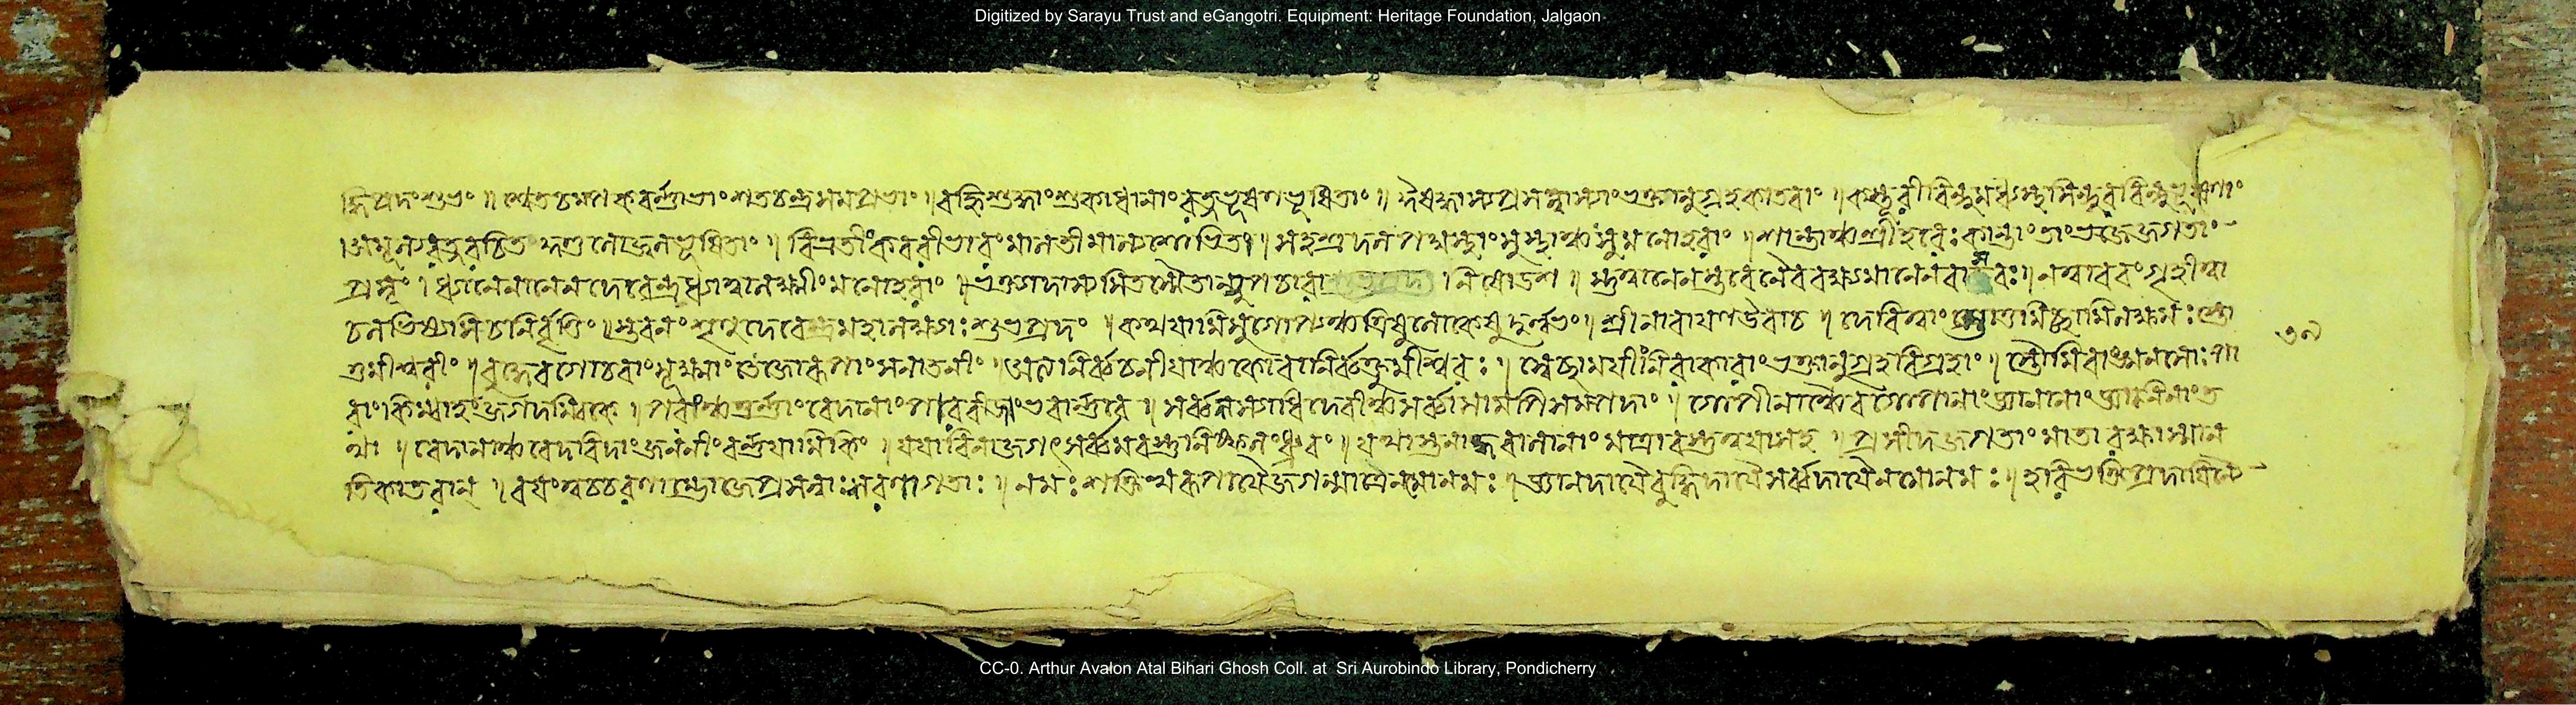 Digitized by Sarayu Trust and eGangotri. Equipment: Heritage Foundation, Jalgaon
দ্ধিপ্রদং শুভং ॥ শ্বেতচম্পকবর্ণাভাং শতচন্দ্রসমপ্রভাং । বহ্নিশুদ্ধাং শুকাধানাং রত্নভূষণভূষিতাং ॥ ঈষদ্ধাস্যপ্রসন্নাস্যাং ভক্তানুগ্রহকাতরাং । কস্তূরীবিন্দু
অমূল্যরত্নরচিত কুণ্ডলোজ্জ্বলভূষিতাং । বিভ্রতীং কবরীভারং মালতীমাল্যশোভিতং । সহস্রদলপদ্মস্থাং সুস্থাঞ্চ সুমনোহরাং । শান্তাঞ্চ শ্রীহরেঃ কান্তাং তাং ভজেজ্জগতাং
প্রসূং । ধ্যানেনানেন দেবেন্দ্র ধ্যাত্বা লক্ষ্মীং মনোহরাং ।
স্তবনং শৃণু দেবেন্দ্র মহালক্ষ্ম্যাঃ শুভপ্রদং । কথয়ামি সুগোপ্যঞ্চ ত্রিষু লোকেষু দুর্লভং । শ্রীনারায়ণ উবাচ । দেবি ত্বাং স্তোতুমিচ্ছামি ন ক্ষমাঃ স্তো
তুমীশ্বরীং । বুদ্ধেরগোচরাং সূক্ষ্মাং তেজোরূপাং সনাতনীং । অত্যনির্ব্বচনীয়াঞ্চ কো বা নির্ব্বক্তুমীশ্বরঃ । স্বেচ্ছাময়ীং নিরাকারাং ভক্তানুগ্রহবিগ্রহাং । স্তৌমি বাঙ্মনসোঃ পা
রাং কিম্বাহং জগদম্বিকে । পরাং চতুর্ণাং বেদানাং পারবীজং ভবার্ণবে । সর্ব্বশস্যাধিদেবীঞ্চ সর্ব্বাসামপি সম্পদাং । যোগীনাঞ্চৈব যোগানাং জ্ঞানানাং জ্ঞানিনাং ত
থা । বেদানাঞ্চ বেদবিদাং জননীং বর্ণয়ামি কিং । যয়া বিনা জগৎ সর্ব্বমবস্তু নিষ্ফলং ধ্রুবং । যথা স্তনান্ধবালানাং মাত্রা বস্তু ত্বয়া সহ । প্রসীদ জগতাং মাতা রক্ষাস্মান
তিকাতরান্ । বয়ং ত্বচ্চরণাম্ভোজে প্রসন্নাঃ শরণাগতাঃ । নমঃ শক্তিস্বরূপায়ৈ জগন্মাত্রে নমোনমঃ । জ্ঞানদায়ৈ বুদ্ধিদায়ৈ সর্ব্বদায়ৈ নমোনমঃ । হরিভক্তিপ্রদায়িন্যৈ
CC-0. Arthur Avalon Atal Bihari Ghosh Coll. at Sri Aurobindo Library, Pondicherry